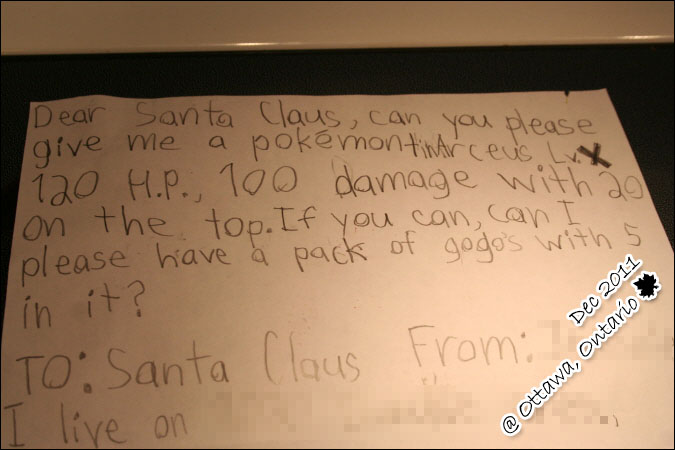 Dear Santa Claus, can you please
give me a pokémon tin Arceus Lv. X
120 H.P., 100 damage with 20
on the top. If you can, can I
please have a pack of gogo's with 5
in it?
TO: Santa Claus From:
I live on
Dec 2011
@ Ottawa, Ontario